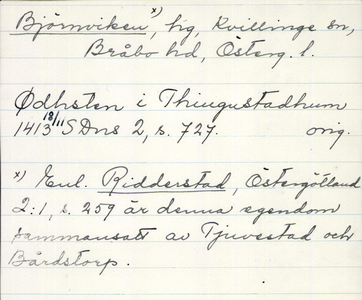 Björnviken x), lig, Kvillinge sn,
Bråbo hd, Österg. l.
Ødhsten i Thingustadhum
1413 18/11 SDns 2, s. 727. orig.
x) Enl. Ridderstad, Östergötland
2:1, s. 259 är denna egendom
sammansatt av Tjuvestad och
Bårdstorp.